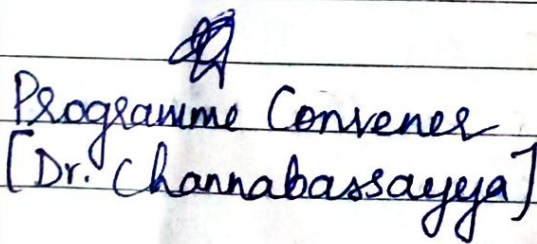 Programme Convener
[Dr. Channabassayya]